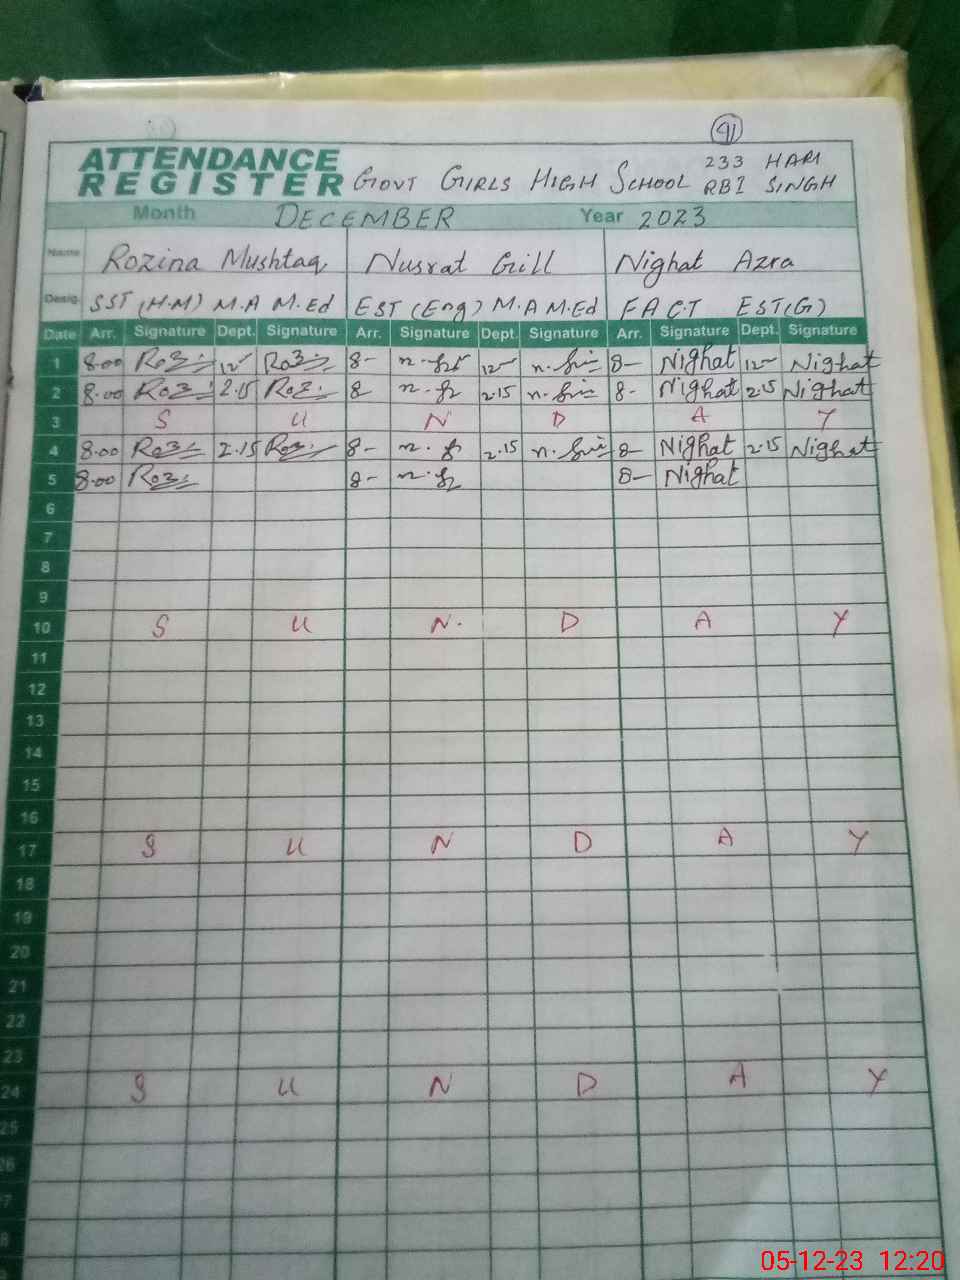 91
ATTENDANCE
REGISTER GOVT GIRLS HIGH SCHOOL 233 RBI HARI SINGH
Month DECEMBER Year 2023
Name Rozina Mushtaq Nusrat Gill Nighat Azra
Desig. SST (H.M) M.A M.Ed EST (Eng) M.A M.Ed F A C.T EST(G)
Date Arr. Signature Dept. Signature Arr. Signature Dept. Signature Arr. Signature Dept. Signature
1 8.00 12 8- 12 8- Nighat 12 Nighat
2 8.00 2.15 8 2.15 8- Nighat 2.15 Nighat
3 S U N D A Y
4 8.00 2.15 8- 2.15 8- Nighat 2.15 Nighat
5 8.00 8- 8- Nighat
6
7
8
9
10 S U N. D A Y
11
12
13
14
15
16
17 S U N D A Y
18
19
20
21
22
23
24 S U N D A Y
25
26
7
8
05-12-23 12:20